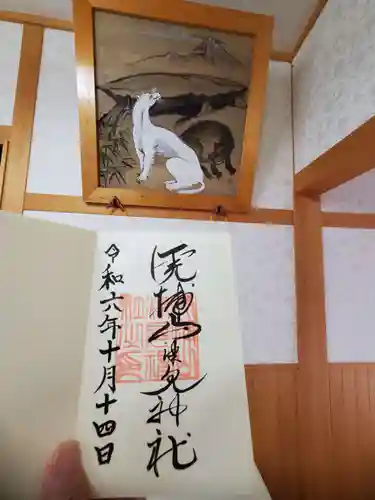 虎捕山津見神社
令和六年十月十四日